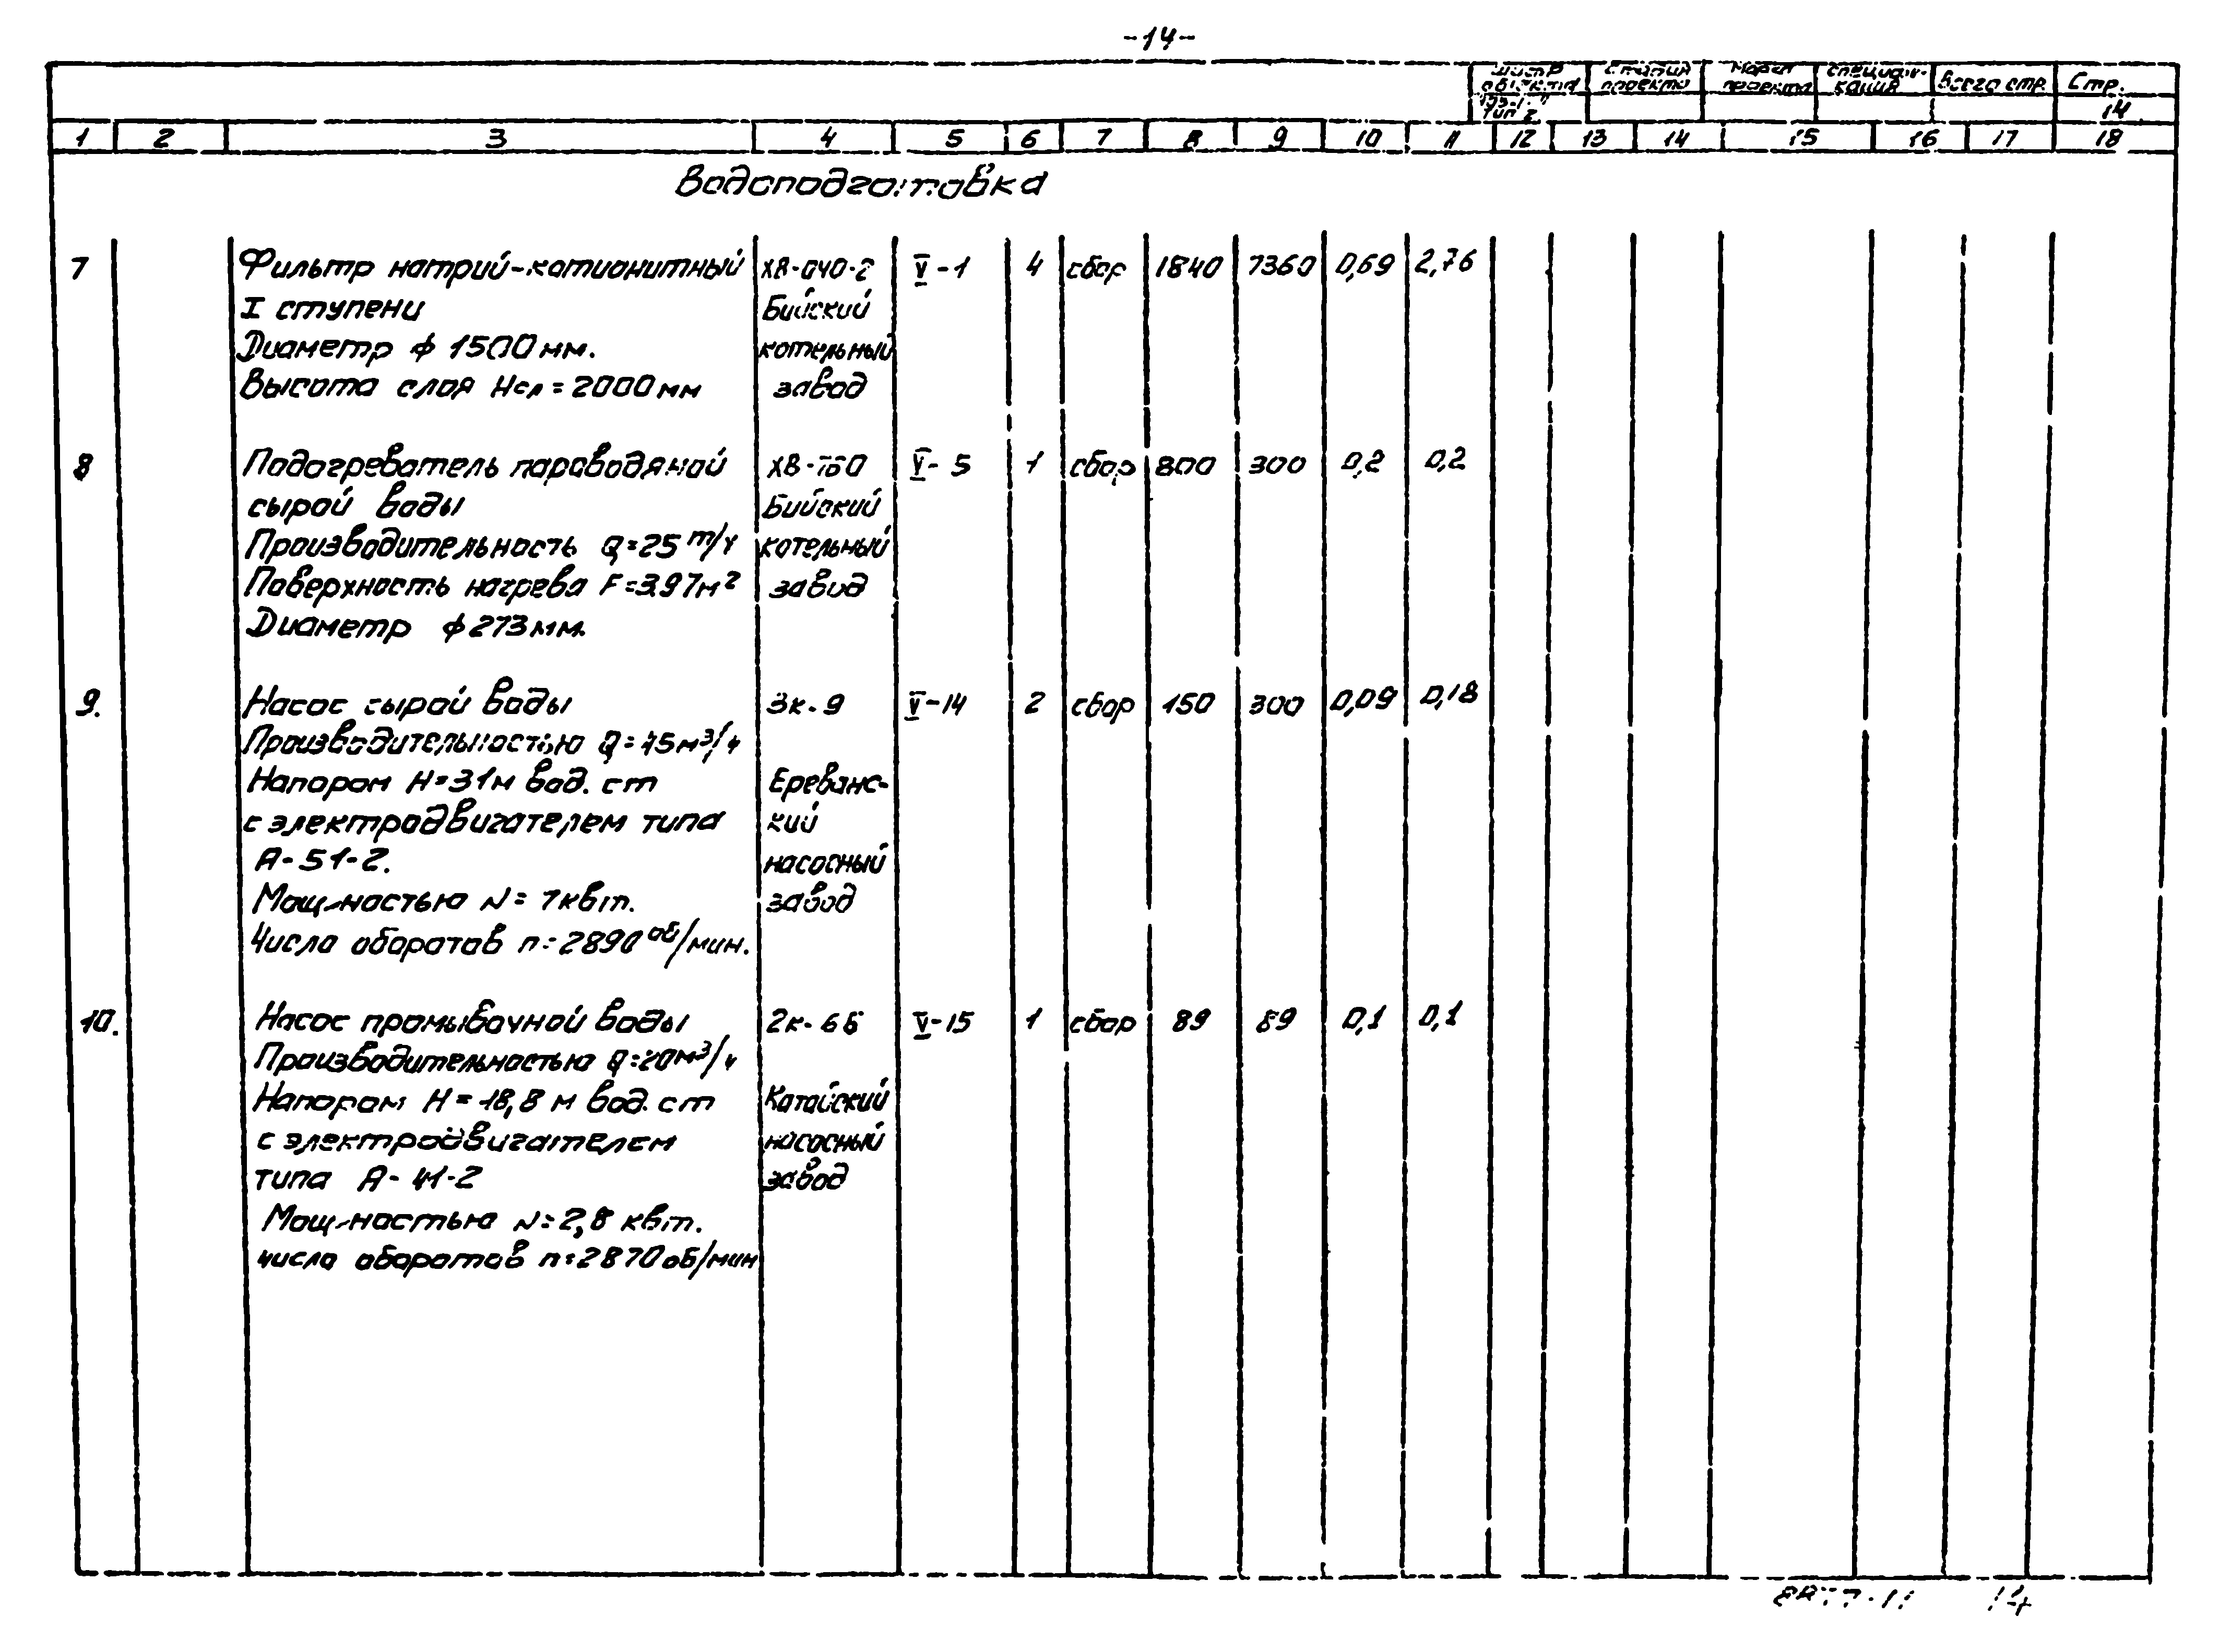 -14-
Шифр объекта Стадия проекта Марка проекта Специфи-кация Всего стр. Стр.
Тип 2 14
1 2 3 4 5 6 7 8 9 10 11 12 13 14 15 16 17 18
Водоподготовка
7 Фильтр натрий-катионитный ХВ-040-2 V-1 4 сбор 1840 7360 0,69 2,76
I ступени Бийский
Диаметр ф 1500 мм. котельный
Высота слоя Нсл = 2000 мм завод
8 Подогреватель пароводяной V-5 1 сбор 800 300 0,2 0,2
сырой воды Бийский
Производительность Q=25 т/ч котельный
Поверхность нагрева F=3,97м² завод
Диаметр ф 273 мм.
9. Насос сырой воды 3к-9 V-14 2 сбор 150 300 0,09 0,18
Производительностью Q=45м³/ч
Напором Н=31м вод. ст Ереванс-
с электродвигателем типа кий
А-51-2. насосный
Мощ-ностью N= 7квт. завод
Число оборотов n=2890 об/мин.
10. Насос промывочной воды 2к-6б V-15 1 сбор 89 89 0,1 0,1
Производительностью Q=20м³/ч
Напором Н=18,8 м вод. ст Катайский
с электродвигателем насосный
типа А-41-2 завод
Мощ-ностью N=2,8 квт.
число оборотов n=2870 об/мин
14